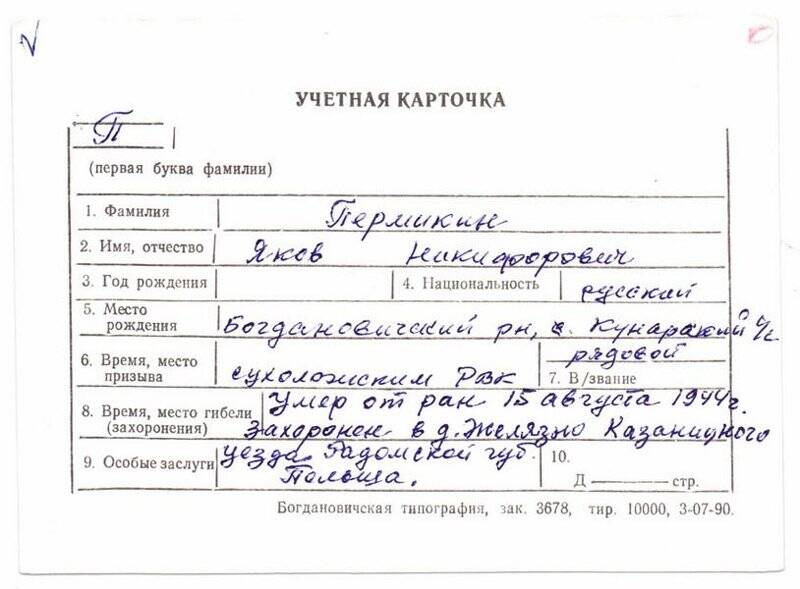 УЧЕТНАЯ КАРТОЧКА
П
(первая буква фамилии)
1. Фамилия Пермикин
2. Имя, отчество Яков Никифорович
3. Год рождения 4. Национальность русский
5. Место рождения Богдановичский рн, с. Кунарский с/с.
6. Время, место призыва сухоложским РВК
рядовой
7. В/звание
8. Время, место гибели (захоронения) Умер от ран 15 августа 1944г.
Захоронен в д. Желязно
9. Особые заслуги уезда Радомской губ.
Польша.
10.
Д стр.
Богдановичская типография, зак. 3678, тир. 10000, 3-07-90.